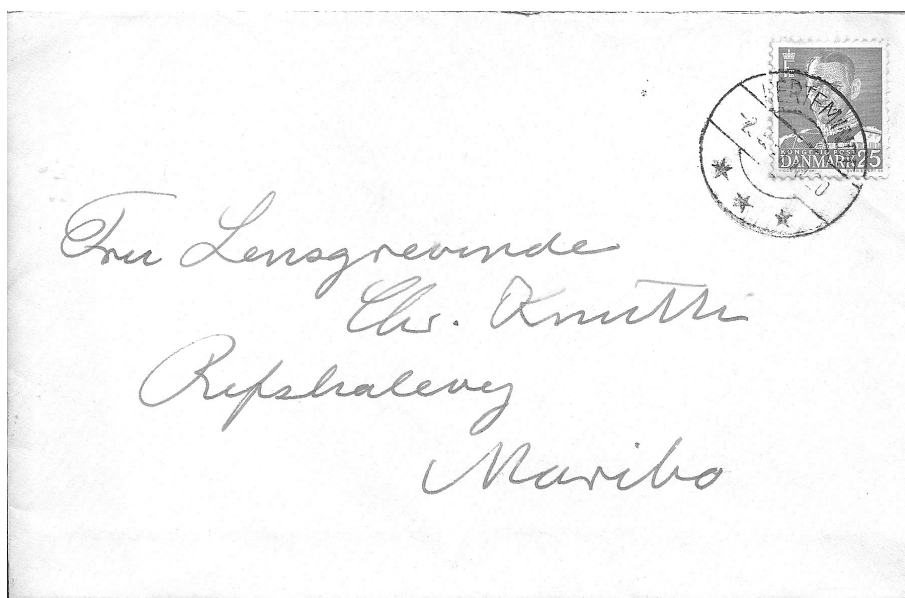 KERTEMINDE
DANMARK 25
Fru Lensgrevinde
Chr. Knuth
Refshalevej
Maribo